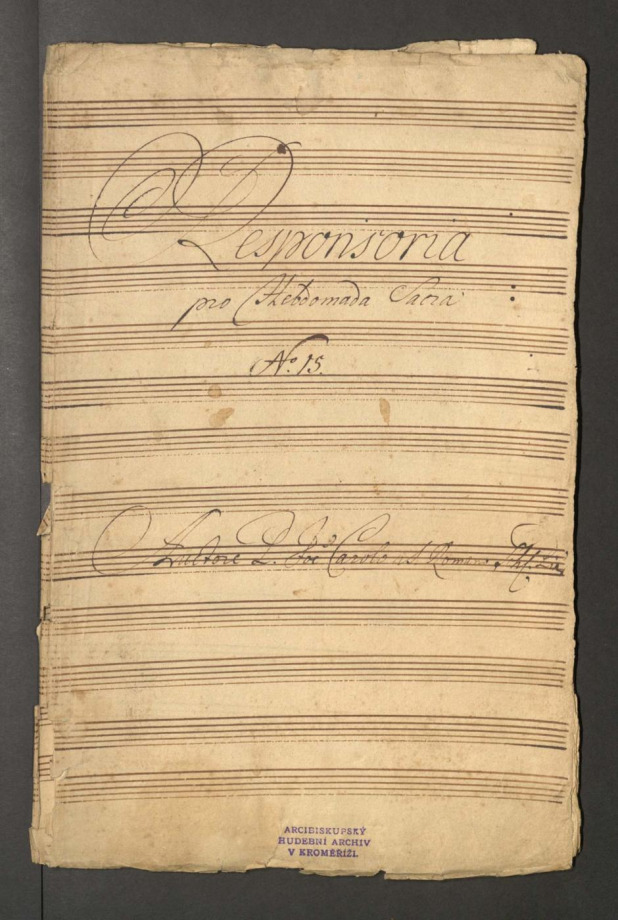 Responsoria
pro Hebdomada Sacra
No. 15.
Authore D. Joe Carolo a S. Romano
ARCIBISKUPSKÝ
HUDEBNÍ ARCHIV
V KROMĚŘÍŽI.